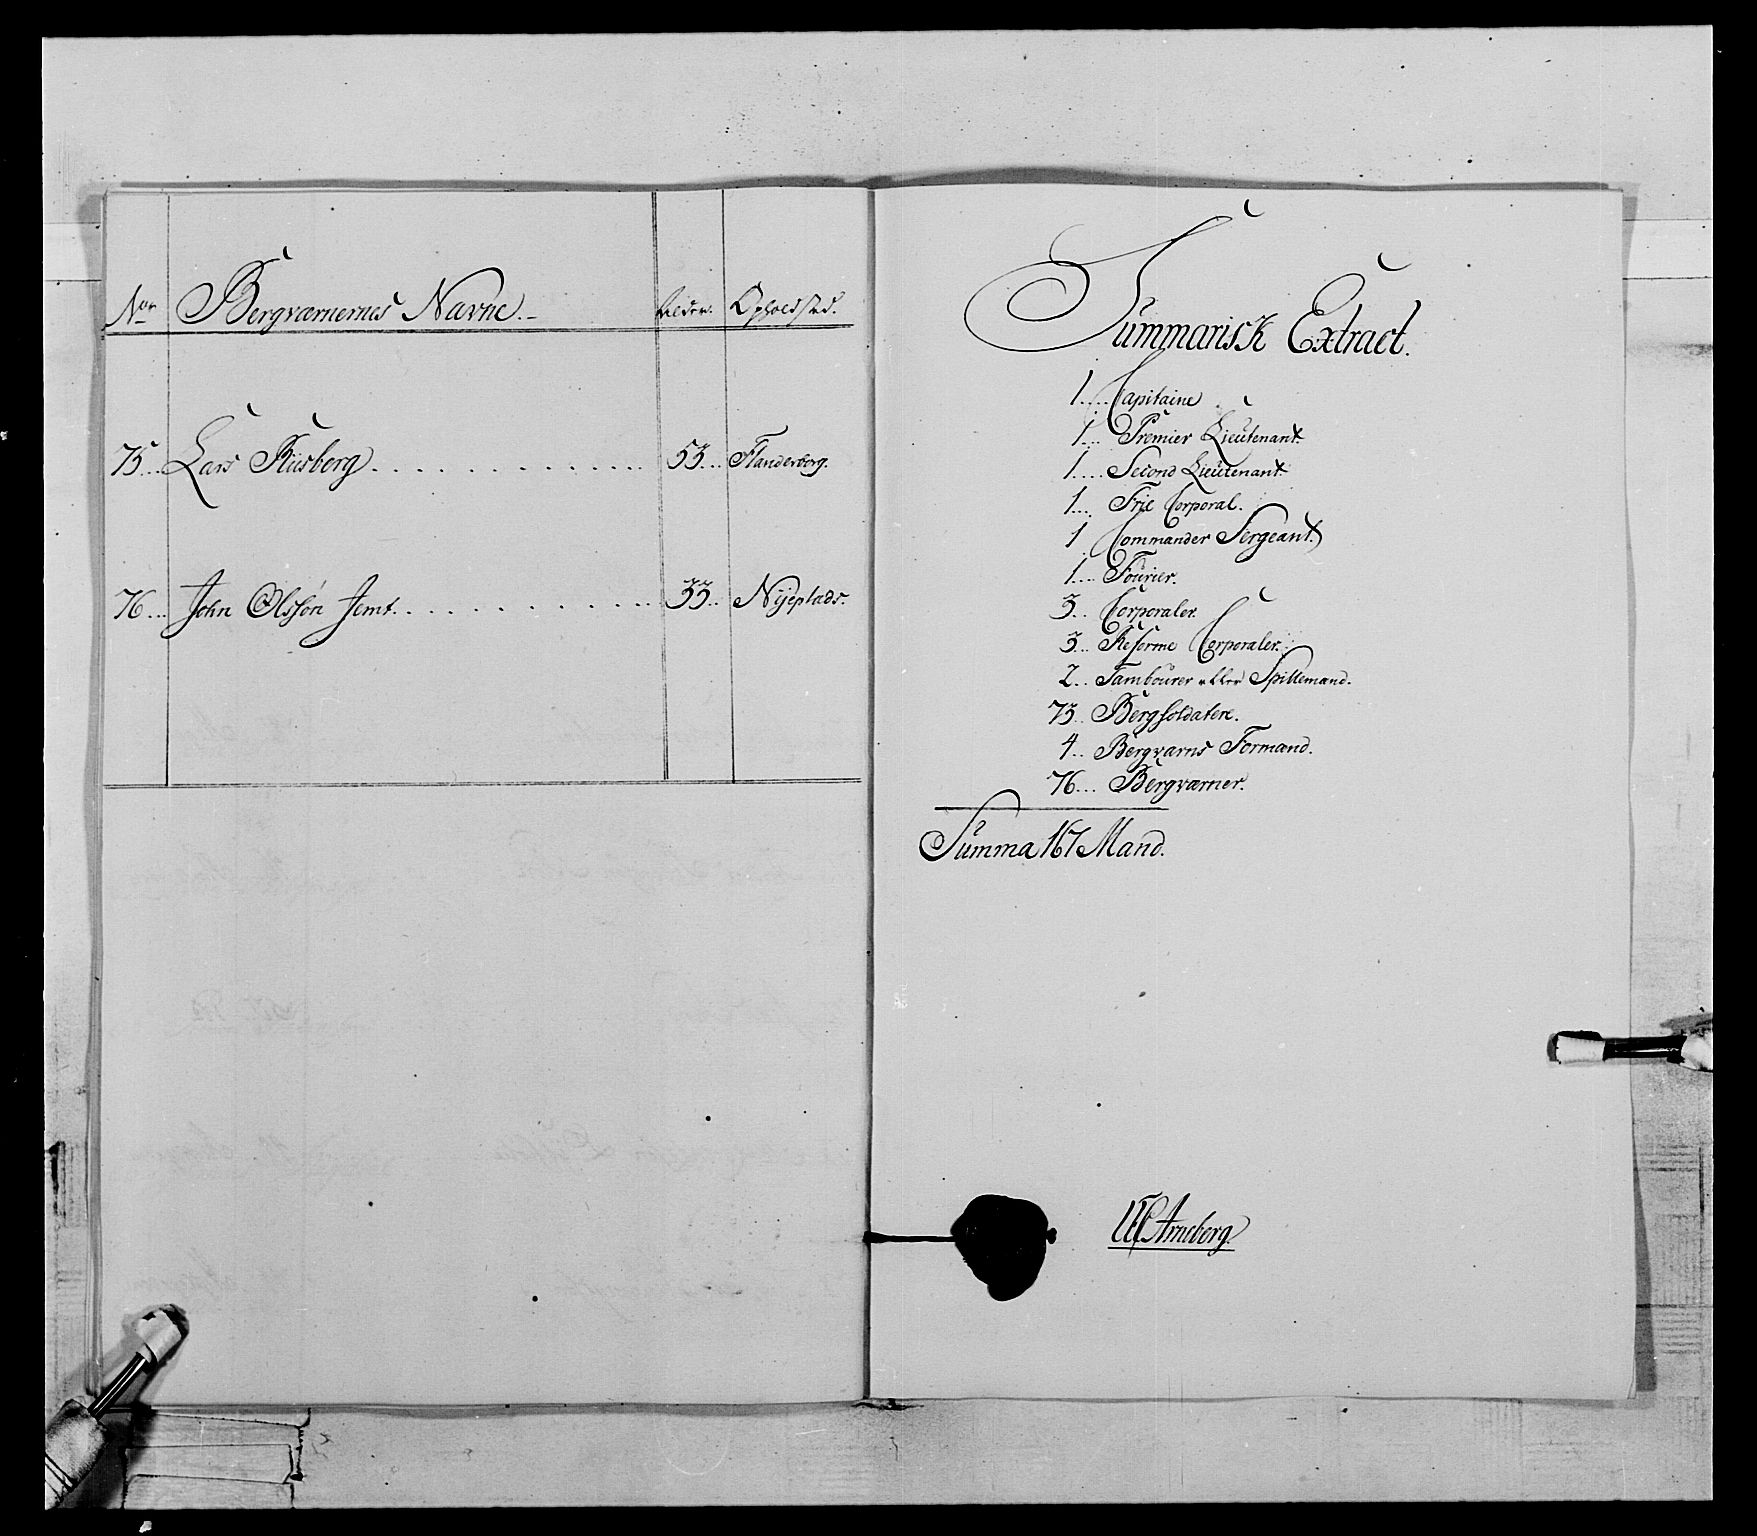 No. Bergværnernes Navne. Alder. Opholdsted.
75... Lars Riisberg . . . . . . . . . . . . . 53... Flanderborg.
76... John Olssøn Jemt . . . . . . . . . . . . . 33.. Nijeplads.
Summarisk Extract.
1.... Capitaine
1... Premier Lieutenant
1.... Second Lieutenant
1.... Frie Corporal.
1 Commander Sergeant.
1.... Fourier.
3.. Corporaler.
3... Reforme Corporaler.
2.. Tambourer eller Spillemænd.
73.. Bergsoldatere.
4.. Bergværns Formænd.
76... Bergværner.
Summa 167 Mand.
Arneberg.